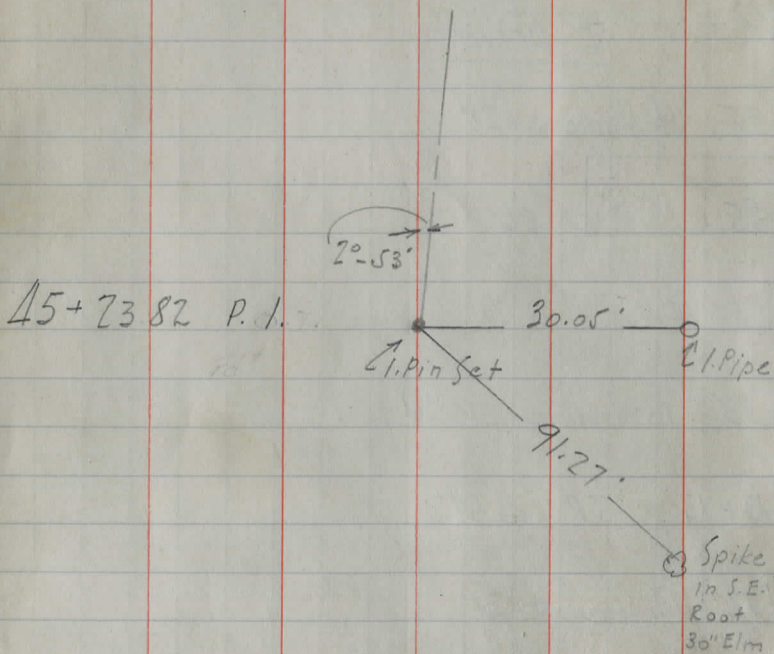 2°-53'
45+23.82 P.I.
30.05'
I.Pin Set
I.Pipe
91.27'
Spike
in S.E.
Root
30" Elm